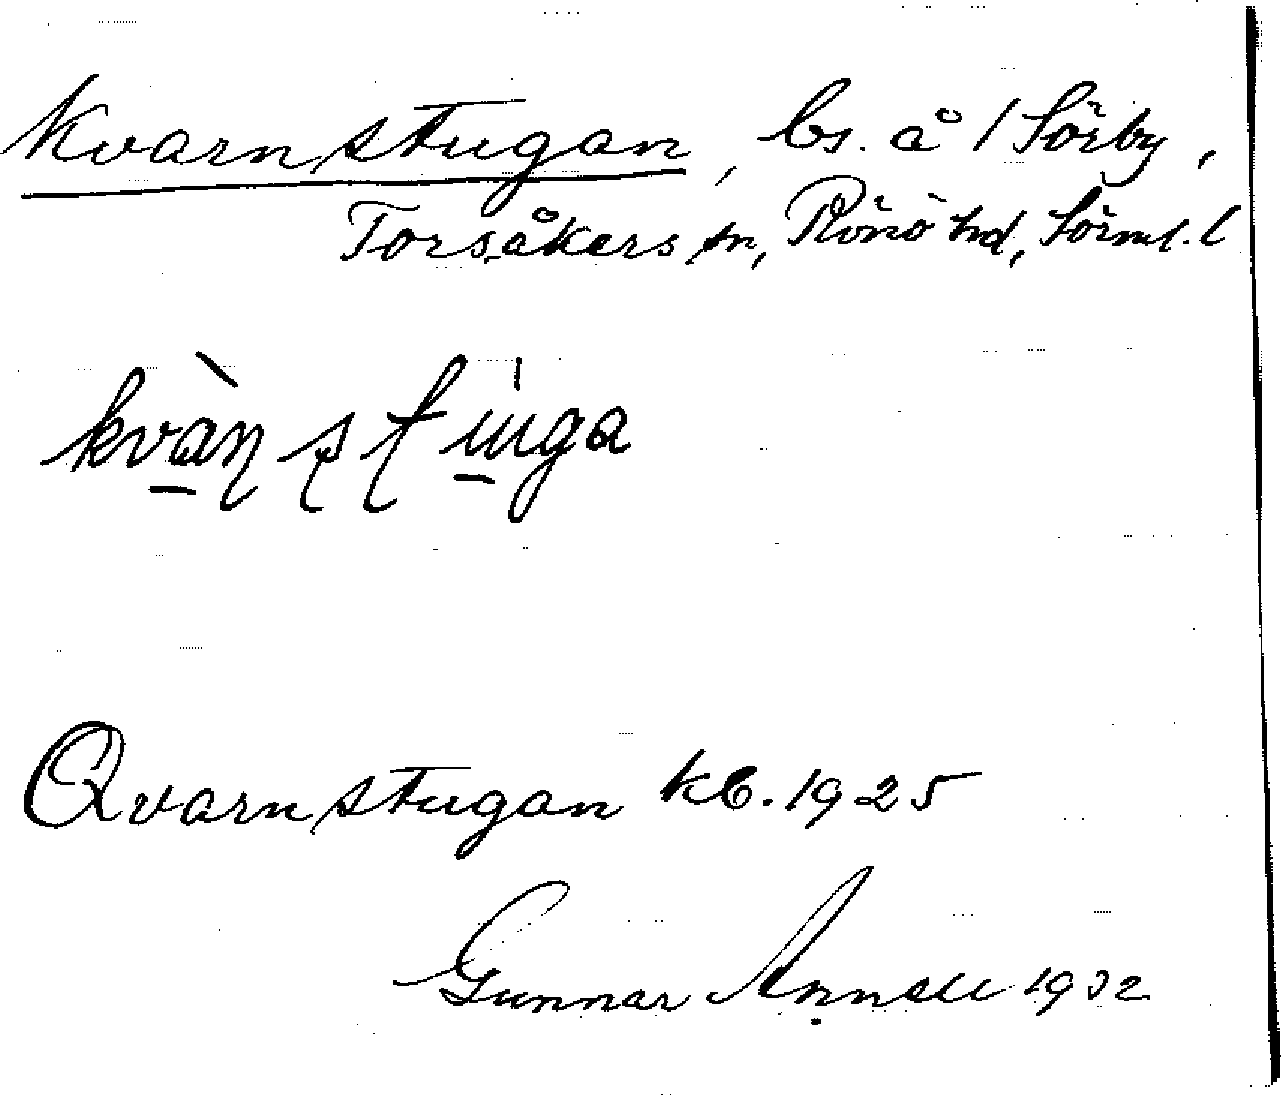 Kvarnstugan, bs. å / Sörby,
Torsåkers sn, Rönö hd, Sörml. l
Qvarnstugan kb. 1925
Gunnar 1932